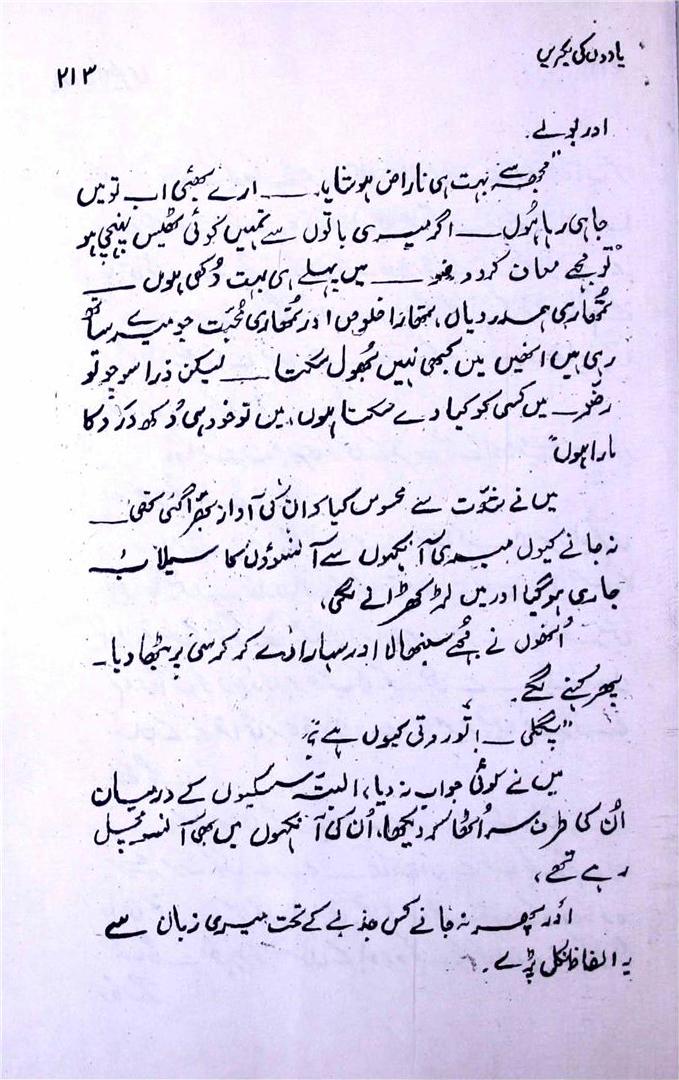 یادوں کی لکیریں
۲۱۳
اور بولے۔
"مجھ سے بہت ہی ناراض ہو شاید ــــ ارے بھئی اب تو میں
جا ہی رہا ہُوں ــــ اگر میری باتوں سے تمہیں کوئی ٹھیس پہنچی ہو
تو مجھے معاف کردو رضو ــــ میں پہلے ہی بہت دُکھی ہوں ــــ
تمُھاری ہمدردیاں، تمھارا خلوص اور تمُھاری مُحبّت جو میرے ساتھ
رہی ہیں انھیں میں کبھی نہیں بُھول سکتا ــــ لیکن ذرا سوچو تو
رضّو ــ میں کسی کو کیا دے سکتا ہوں، میں تو خود ہی دُکھ درد کا
مارا ہوں"
میں نے شدّت سے محسوس کیا کہ ان کی آواز بھّرا گئی تھی ــــ
نہ جانے کیوں میری آنکھوں سے آنسوؤں کا سیلاب
جاری ہوگیا اور میں لڑکھڑانے لگی،
اُنھوں نے مُجھے سنبھالا اور سہارا دے کر کرسی پر بٹھا دیا۔
پھر کہنے لگے۔
"پگلی ــ! تُو روتی کیوں ہے"؟
میں نے کوئی جواب نہ دیا، البتہ سسکیوں کے درمیان
اُن کی طرف سر اُٹھا کر دیکھا، اُن کی آنکھوں میں بھی آنسو مچل
رہے تھے،
اور پھر نہ جانے کس جذبے کے تحت میری زبان سے
یہ الفاظ نکل پڑے۔